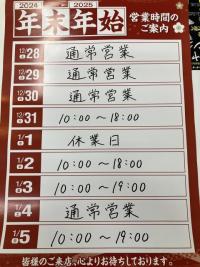 2024 2025
年末年始 営業時間の
ご案内
12/28 通常営業
12/29 通常営業
12/30 通常営業
12/31 10:00〜18:00
1/1 休業日
1/2 10:00〜18:00
1/3 10:00〜19:00
1/4 通常営業
1/5 10:00〜19:00
皆様のご来店、心よりお待ちしております。